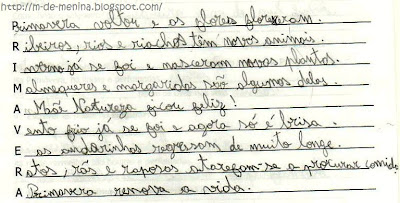 http://m-de-menina.blogspot.com/
Primavera voltou e as flores floresceram.
Ribeiros, rios e riachos têm novos animais.
Inverno já se foi e nasceram novas plantas.
Malmequeres e margaridas são algumas delas.
A Mãe Natureza ficou feliz!
Vento frio já se foi e agora só é brisa.
E as andorinhas regressam de muito longe.
Ratos, rãs e raposas atarefam-se a procurar comida
A Primavera renova a vida.